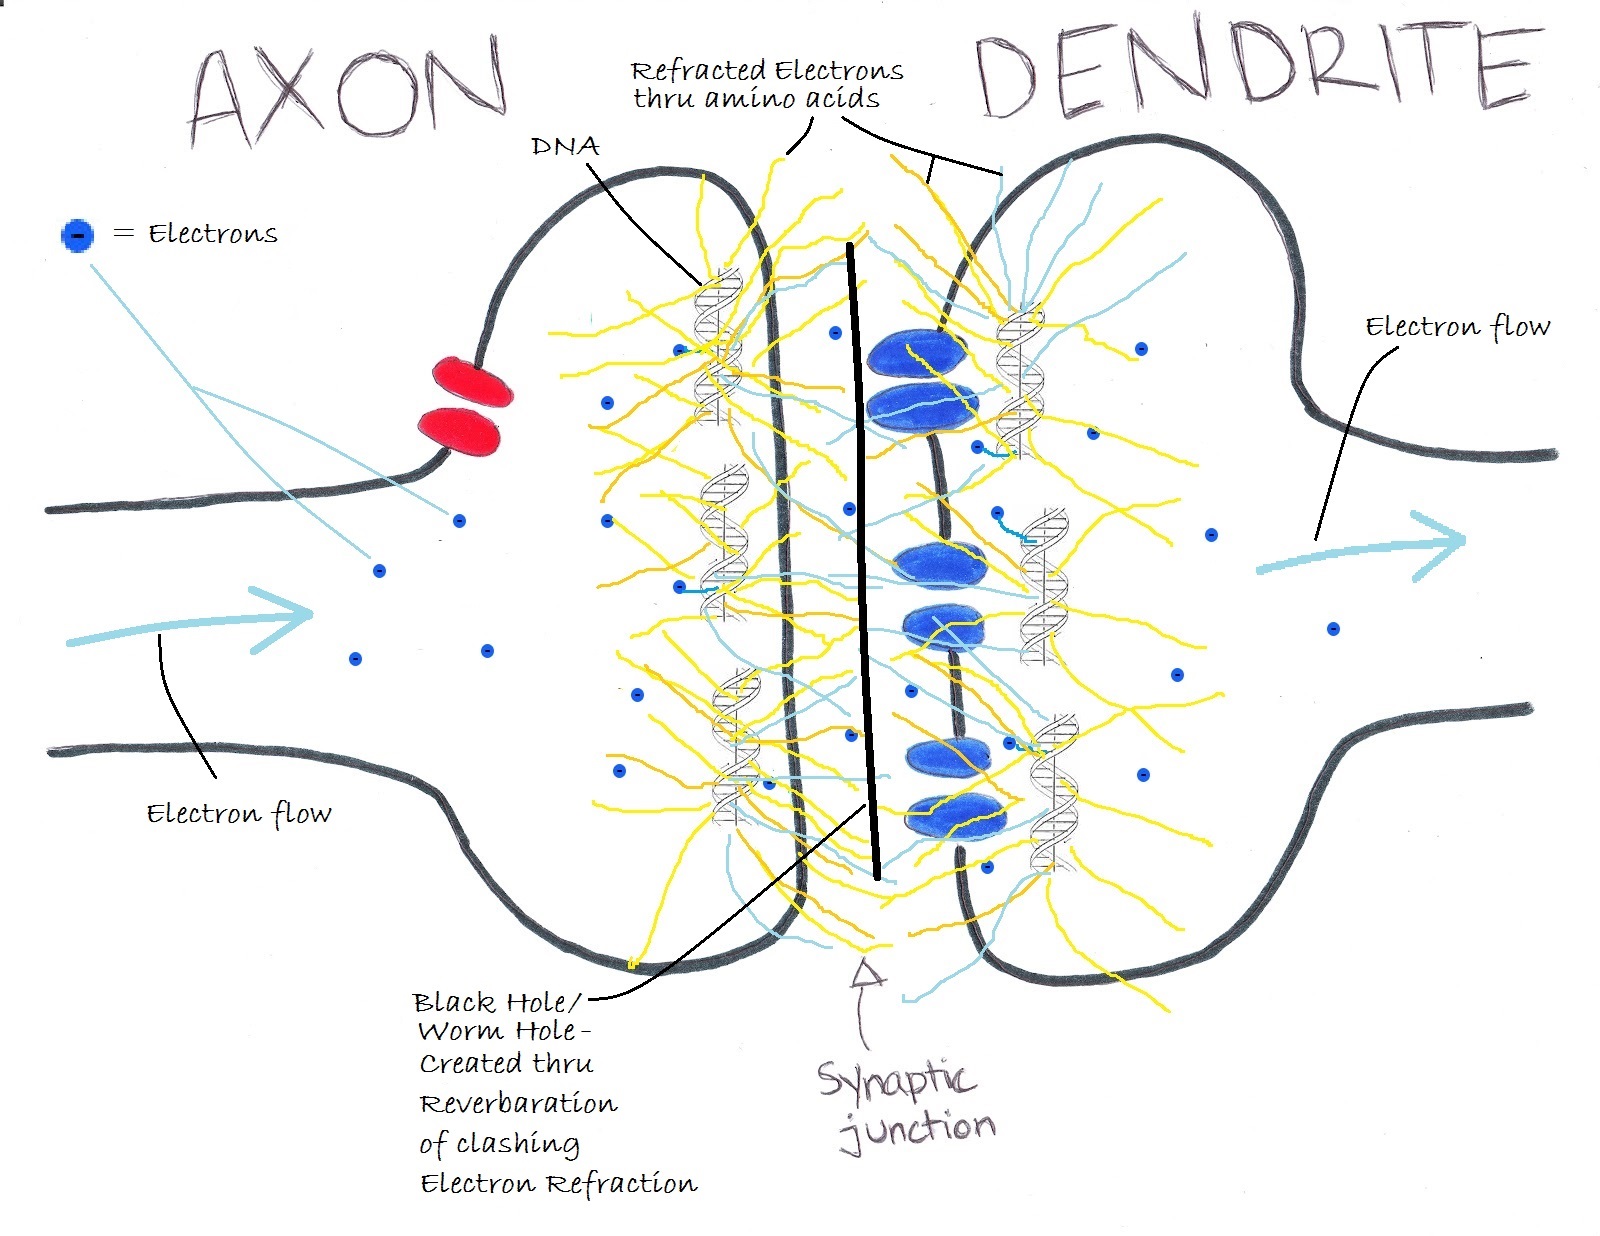 AXON
DENDRITE
Refracted Electrons
thru amino acids
DNA
= Electrons
Electron flow
Electron flow
Black Hole/
Worm Hole-
Created thru
Reverbaration
of clashing
Electron Refraction
Synaptic
junction